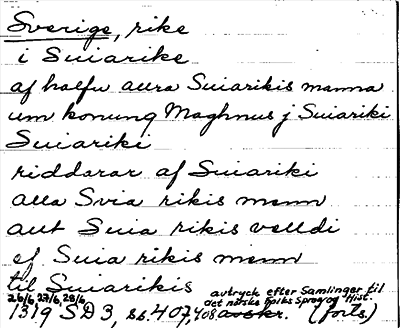 Sverige, rike
i Suiarike
af halfu allra Suiarikis manna
um konung Maghnus j Suiariki
Suiariki
riddarar af Suiariki
alla Svia rikis menn
alt Suia rikis velldi
ef Suia rikis menn
til Suiarikis
avtryck efter Samlinger til
26/6, 27/6, 28/6 det norske Folks Sprog og Hist.
1319 SD 3, ss. 407, 408 avskr. (forts.)